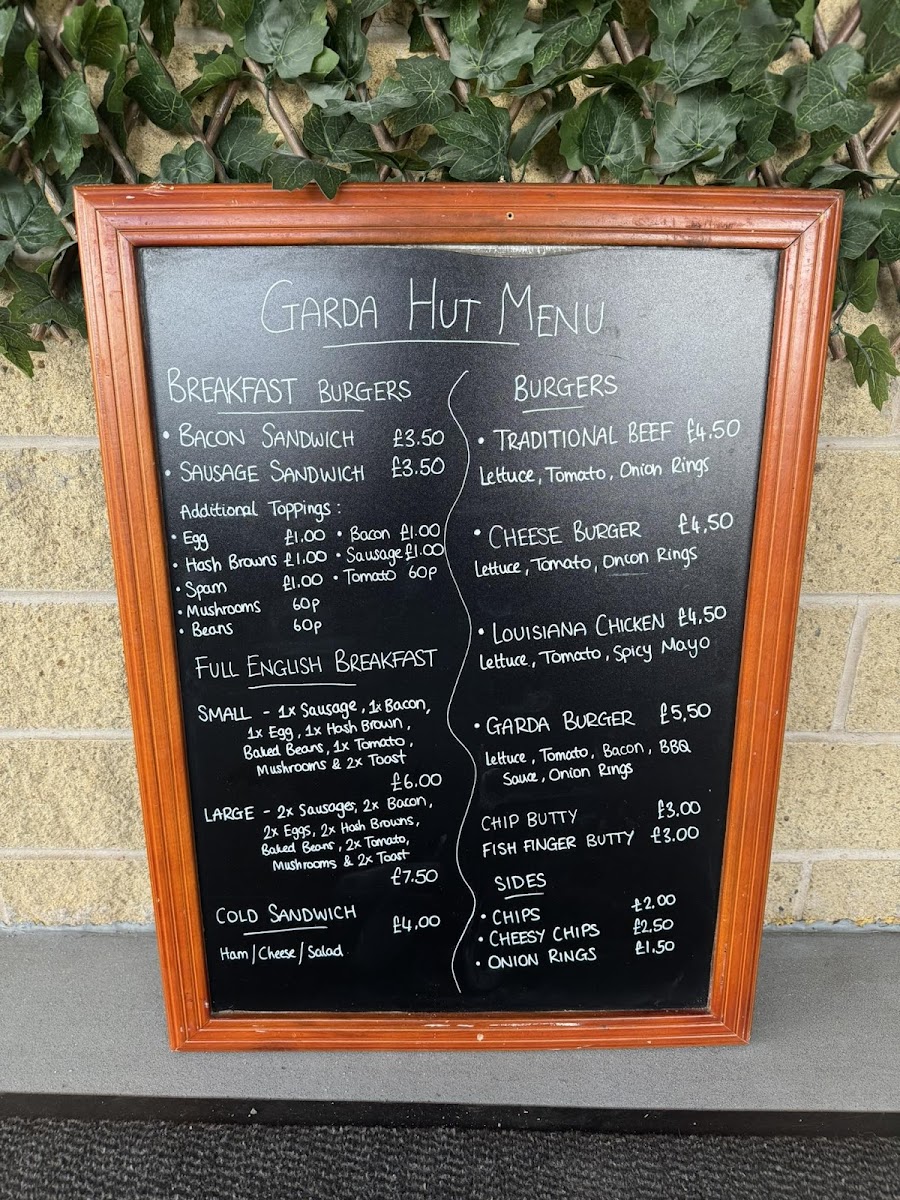 GARDA HUT MENU
BREAKFAST BURGERS
• BACON SANDWICH £3.50
• SAUSAGE SANDWICH £3.50
Additional Toppings :
• Egg £1.00 • Bacon £1.00
• Hash Browns £1.00 • Sausage £1.00
• Spam £1.00 • Tomato 60p
• Mushrooms 60p
• Beans 60p
FULL ENGLISH BREAKFAST
SMALL - 1x Sausage, 1x Bacon,
1x Egg, 1x Hash Brown,
Baked Beans, 1x Tomato,
Mushrooms & 2x Toast
£6.00
LARGE - 2x Sausages, 2x Bacon,
2x Eggs, 2x Hash Browns,
Baked Beans, 2x Tomato,
Mushrooms & 2x Toast
£7.50
COLD SANDWICH £4.00
Ham/Cheese/Salad
BURGERS
• TRADITIONAL BEEF £4.50
Lettuce, Tomato, Onion Rings
• CHEESE BURGER £4.50
Lettuce, Tomato, Onion Rings
• LOUISIANA CHICKEN £4.50
Lettuce, Tomato, Spicy Mayo
• GARDA BURGER £5.50
Lettuce, Tomato, Bacon, BBQ
Sauce, Onion Rings
CHIP BUTTY £3.00
FISH FINGER BUTTY £3.00
SIDES
• CHIPS £2.00
• CHEESY CHIPS £2.50
• ONION RINGS £1.50